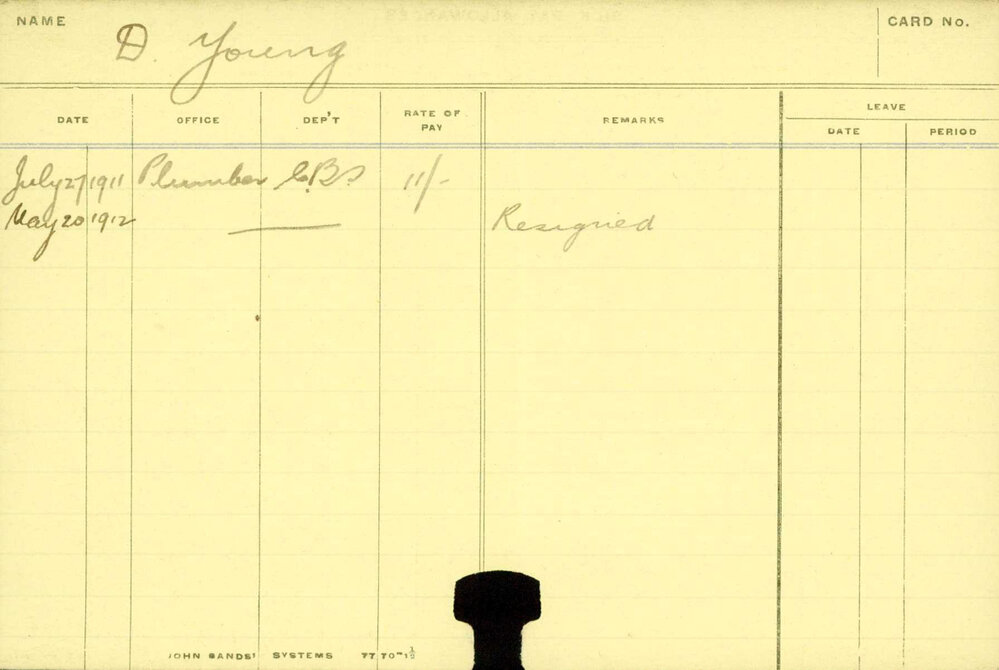 NAME D. Young CARD No.
DATE OFFICE DEP'T RATE OF PAY REMARKS LEAVE
DATE PERIOD
July 27 1911 Plumber 11/-
May 20 1912 — Resigned
JOHN SANDS' SYSTEMS 7770-1½